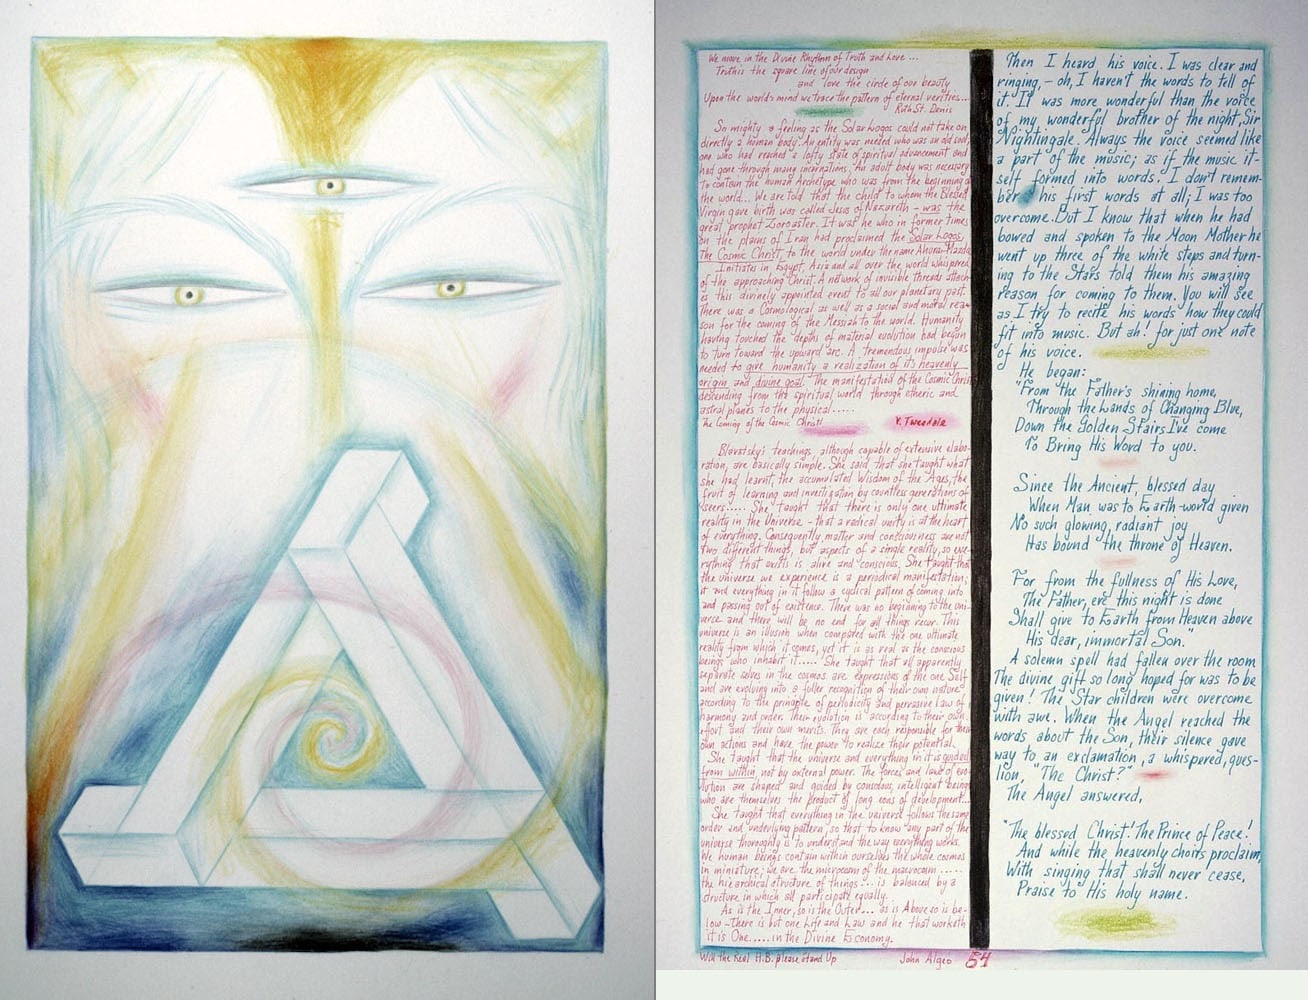 We move in the Divine Rhythm of Truth and Love ...
Truth is the square line of our design
and love the circle of our beauty
Upon the worlds mind we trace the pattern of eternal verities....
Ruth St. Denis
So mighty a feeling as the Solar Logos could not take on
directly a human body. An entity was needed who was an old soul,
one who had reached a lofty state of spiritual advancement and
had gone through many incarnations. An adult body was necessary
to contain the human Archetype who was from the beginning of
the world... We are told that the child to whom the Blessed
Virgin gave birth was called Jesus of Nazareth – was the
great prophet Zoroaster. It was he who in former times
on the plains of Iran had proclaimed the Solar Logos,
the Cosmic Christ, to the world under the name Ahura-Mazda
Initiates in Egypt, Asia and all over the world whispered
of the approaching Christ. A network of invisible threads attach-
es this divinely appointed event to all our planetary past.
There was a Cosmological as well as a social and moral rea-
son for the coming of the Messiah to the world. Humanity
having touched the depths of material evolution had begun
to turn toward the upward arc. A tremendous impulse was
needed to give humanity a realization of its heavenly
origin and divine goal. The manifestation of the Cosmic Christ
descending from the spiritual world through etheric and
astral planes to the physical.....
The Coming of the Cosmic Christ! V. Tweedale
Blavatsky's teachings, although capable of extensive elabo-
ration, are basically simple. She said that she taught what
she had learnt, the accumulated Wisdom of the Ages, the
fruit of learning and investigation by countless generations of
seers..... She taught that there is only one ultimate
reality in the Universe – that a radical unity is at the heart
of everything. Consequently, matter and consciousness are not
two different things, but aspects of a single reality, so eve-
rything that exists is alive and conscious. She taught that
the universe we experience is a periodical manifestation;
it and everything in it follow a cyclical pattern of coming into
and passing out of existence. There was no beginning to the uni-
verse and there will be no end for all things recur. This
universe is an illusion when compared with the one ultimate
reality from which it comes, yet it is as real as the conscious
beings who inhabit it..... She taught that all apparently
separate selves in the cosmos are expressions of the one Self
and are evolving into a fuller recognition of their own nature
according to the principle of periodicity and pervasive Law of
harmony and order. Their evolution is according to their own
effort and their own merits. They are each responsible for their
own actions and have the power to realize their potential.
She taught that the universe and everything in it is guided
from within, not by external power. The forces and laws of evo-
lution are shaped and guided by conscious, intelligent beings
who are themselves the product of long eons of development...
She taught that everything in the universe follows the same
order and underlying pattern, so that to know any part of the
universe thoroughly is to understand the way everything works.
We human beings contain within ourselves the whole cosmos
in miniature; we are the microcosm of the macrocosm .....
the hierarchical structure of things ... is balanced by a
structure in which all participate equally.
As is the Inner, so is the Outer... as is Above so is be-
low – there is but one Life and Law and he that worketh
it is One..... in the Divine Economy.
Will the Real H.B. please Stand Up John Algeo 54
Then I heard, his voice. I was clear and
ringing, – oh, I haven't the words to tell of
it. It was more wonderful than the voice
of my wonderful brother of the night, Sir
Nightingale. Always the voice seemed like
a part of the music; as if the music it-
self formed into words. I don't remem-
ber his first words at all; I was too
overcome. But I know that when he had
bowed and spoken to the Moon Mother he
went up three of the white steps and turn-
ing to the Stars told them his amazing
reason for coming to them. You will see
as I try to recite his words how they could
fit into music. But ah! for just one note
of his voice.
He began:
"From the Father's shining home,
Through the Lands of Changing Blue,
Down the Golden Stairs I've come
To Bring His Word to you.
Since the Ancient, blessed day
When Man was to Earth-world given
No such glowing, radiant joy
Has bound the throne of Heaven.
For from the fullness of His Love,
The Father, ere this night is done
Shall give to Earth from Heaven above
His dear, immortal Son."
A solemn spell had fallen over the room
The divine gift so long hoped for was to be
given! The Star children were overcome
with awe. When the Angel reached the
words about the Son, their silence gave
way to an exclamation, a whispered, ques-
tion, "The Christ?"
The Angel answered,
"The blessed Christ! The Prince of Peace!
And while the heavenly choirs proclaim,
With singing that shall never cease,
Praise to His holy name.